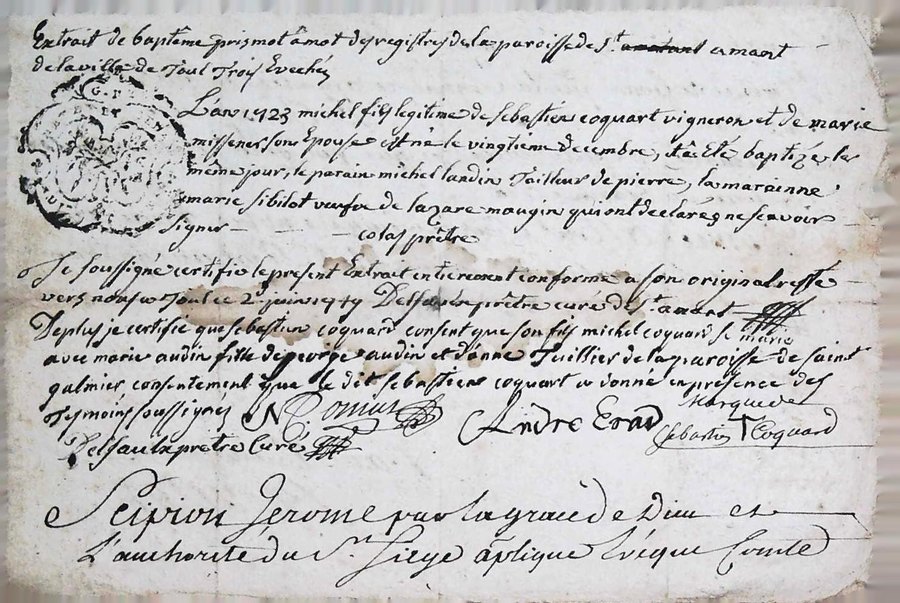 Extrait de baptême pris mot a mot des registres de la paroisse de St. amant
de la ville de Toul Trois Evechés
G. D
L'an 1723 michel fils legitime de sebastien coquart vigneron et de marie
son Epouse est né le vingtieme decembre, et a été baptizé le
même jour, le parain michel landin Tailleur de pierre, la marainne
marie sibilot veufve de lazare maugin qui ont declarés ne scavoir
signer colas prêtre
Je soussigné certifie le present Extrait entierement conforme a son original resté
vers nous a Toul ce 2e juin 1749 Delsaulx prêtre curé de St. amant
De plus je certifie que sebastien coquard consent que son fils michel coquard se marie
avec marie audin fille de george audin et d'anne Tuillier de la paroisse de saint
galmier consentement que le dit sebastien coquart a donné en presence des
Tesmoins soussignés N Tomus André Erard Marque de
Sebastien + Coquard
Delsaulx prêtre Curé
Scipion Jerome par la grace de Dieu et
L'authorité du St. Siege aplique Evêque Comte